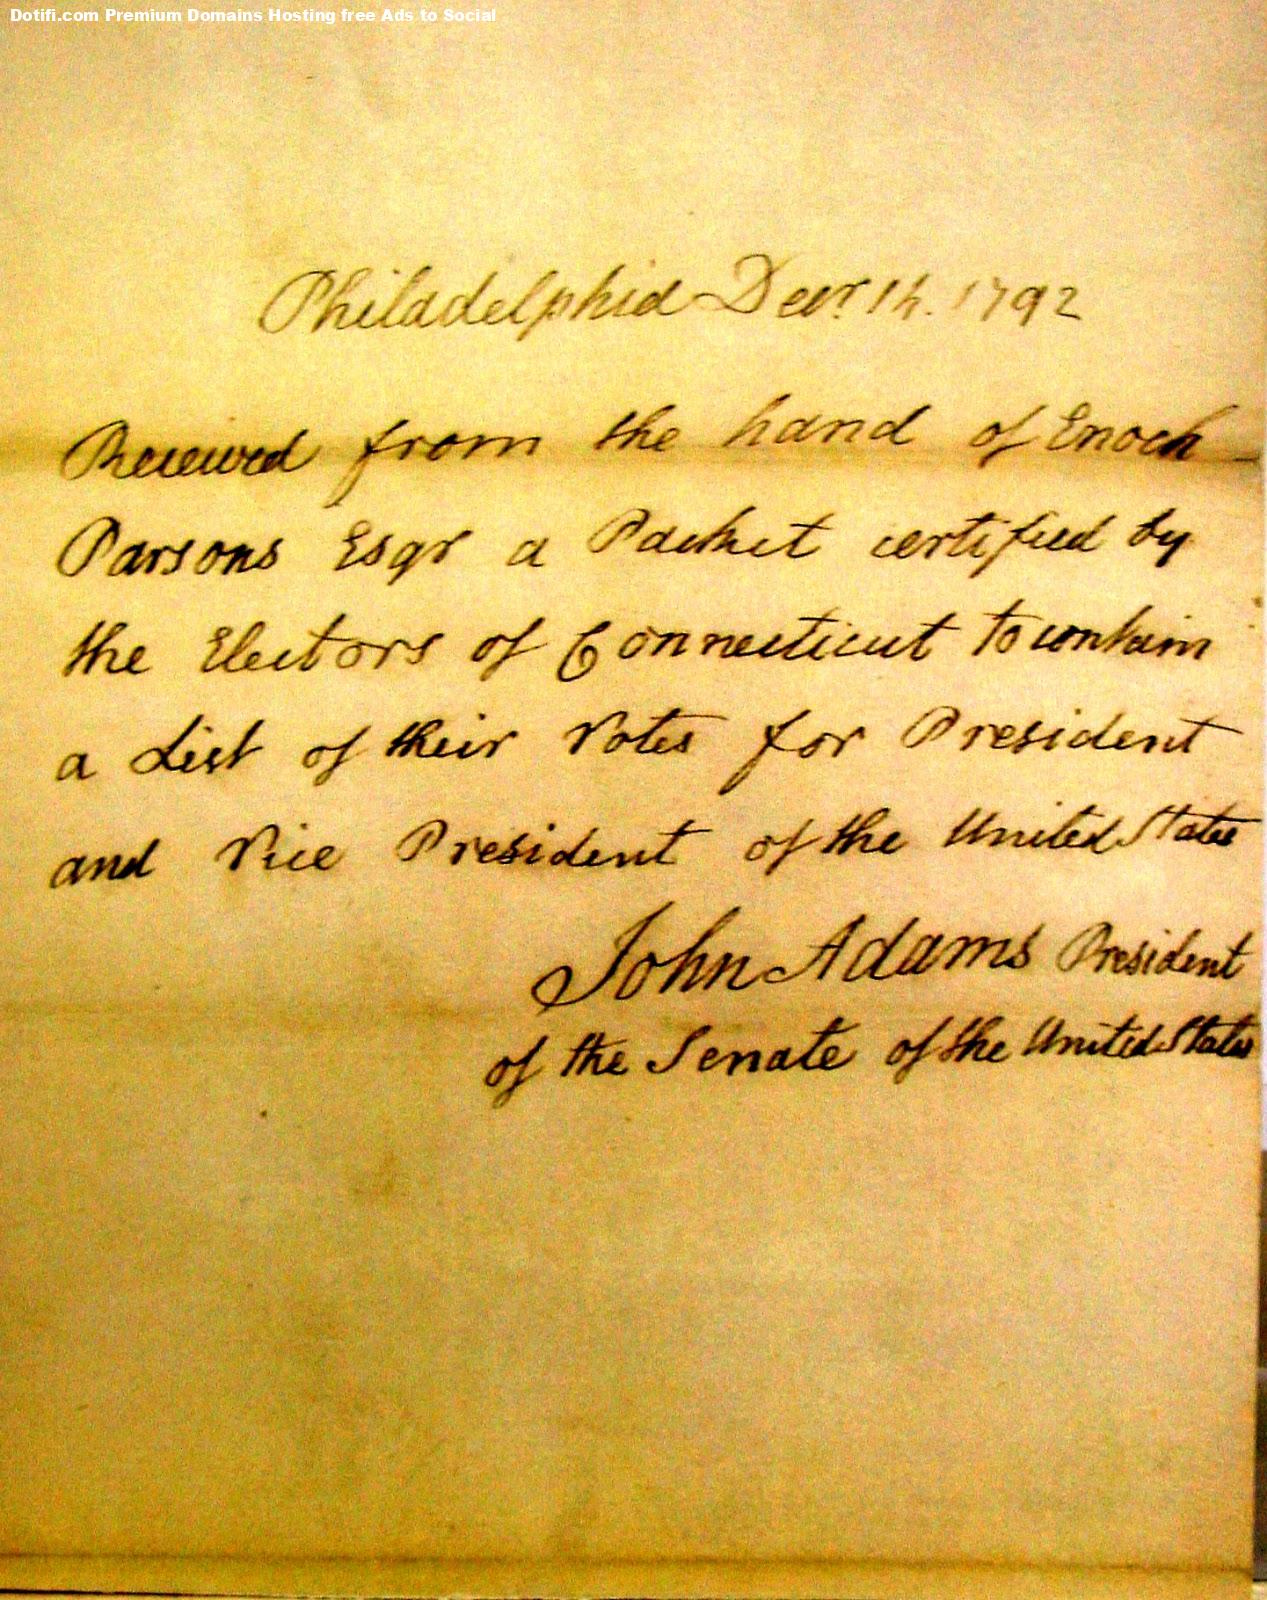 Dotifi.com Premium Domains Hosting free Ads to Social
Philadelphia Decr. 14. 1792
Received from the hand of Enoch
Parsons Esqr a Packet certified by
the Electors of Connecticut to contain
a List of their Votes for President
and Vice President of the United States
John Adams President
of the Senate of the United States